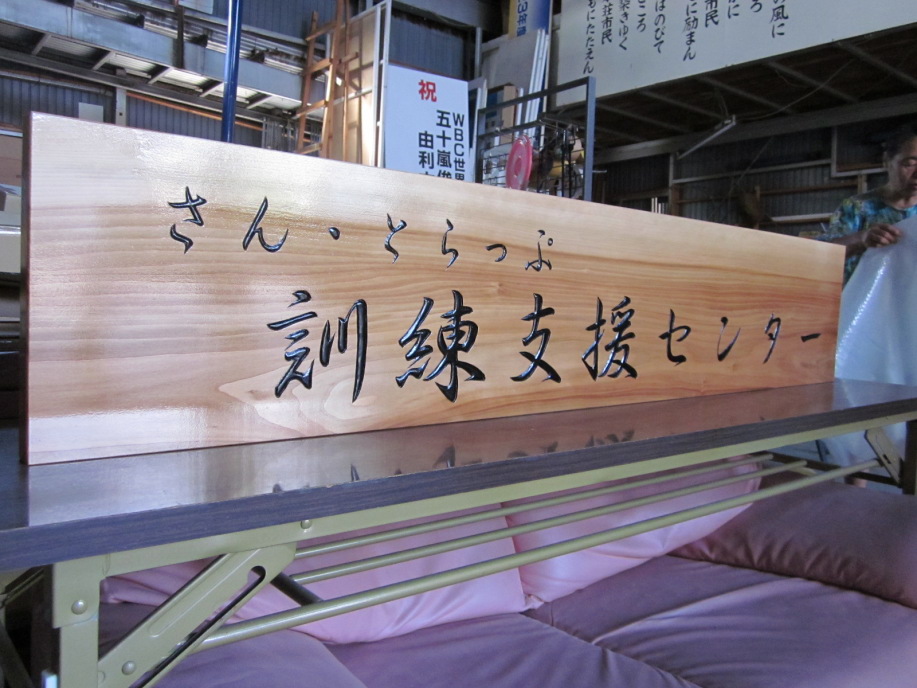 さん・とらっぷ
訓練支援センター
祝
WBC世界
五十嵐俊
由利
の風に
に励まん
市民
はのびて
ころ
荘市民
染きゆく
もにたたえん